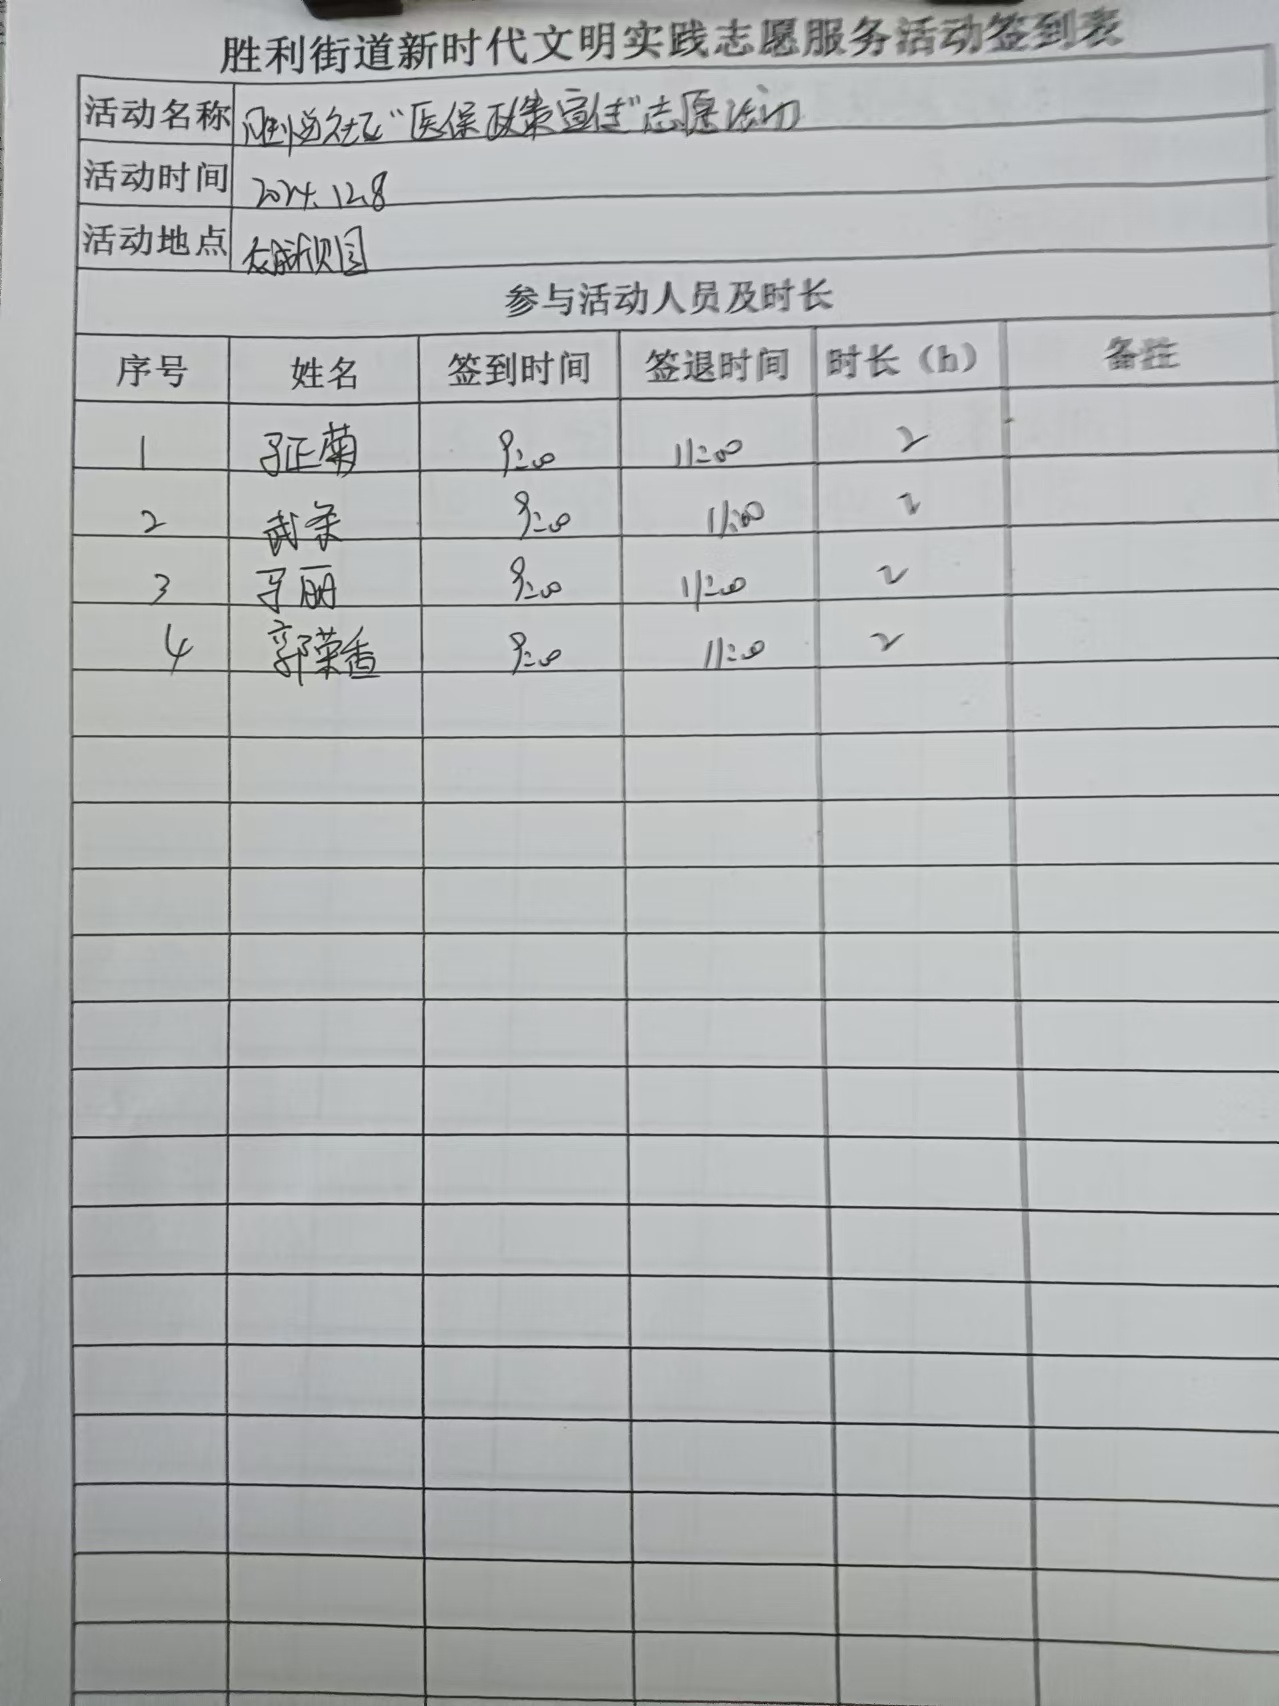 胜利街道新时代文明实践志愿服务活动签到表
活动名称 社区“医保政策宣传”志愿活动
活动时间 2024.12.8
活动地点
参与活动人员及时长
序号 姓名 签到时间 签退时间 时长（h） 备注
1 正菊 9:00 11:00 2
2 武 9:00 11:00 2
3 丽 9:00 11:00 2
4 郭荣香 9:00 11:00 2